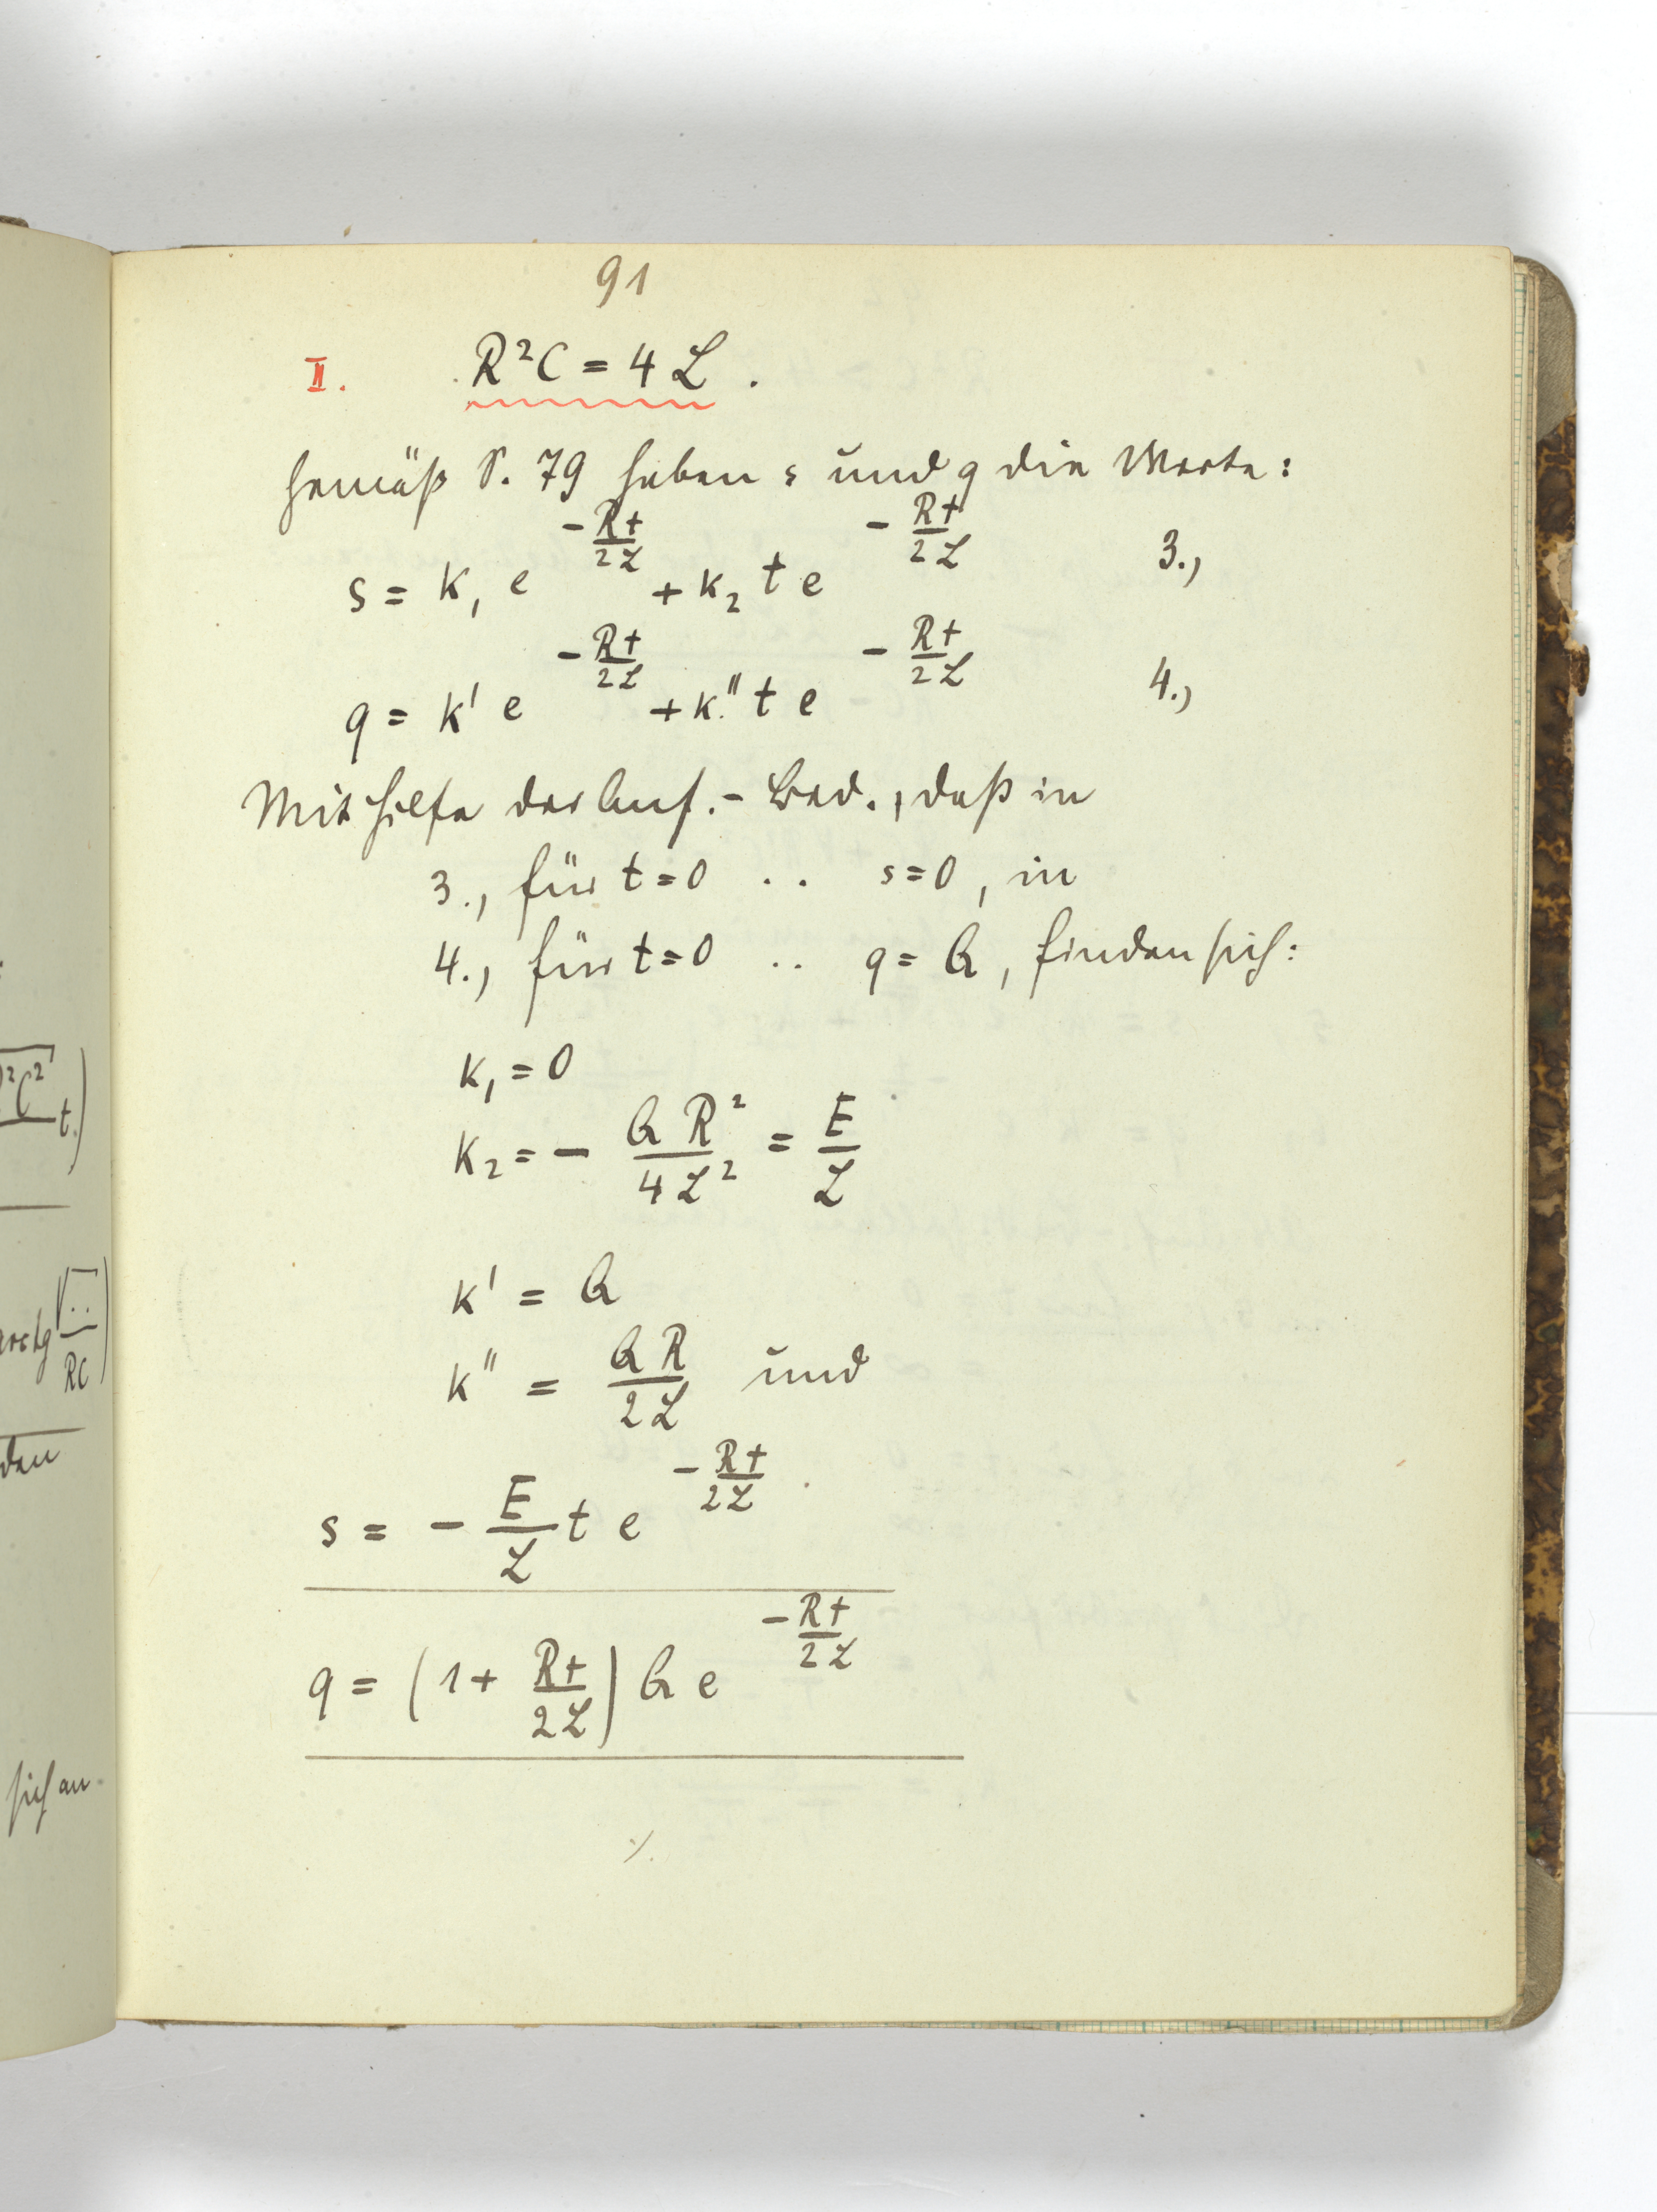 91
II. R²C = 4 L.
Gemäß S. 79 haben s und q die Werte:
s = k₁ e^(-Rt/2L) + k₂ t e^(-Rt/2L) 3.,
q = k' e^(-Rt/2L) + k'' t e^(-Rt/2L) 4.,
Mit Hilfe der Anf.-Bed., daß in
3., für t=0 .. s=0, in
4., für t=0 .. q = Q, finden sich:
k₁ = 0
k₂ = - QR²/4L² = E/L
k' = Q
k'' = QR/2L und
s = - E/L t e^(-Rt/2L)
q = (1 + Rt/2L) Q e^(-Rt/2L)
·/.
²C² t.)
arctg √../RC)
den
sich an-